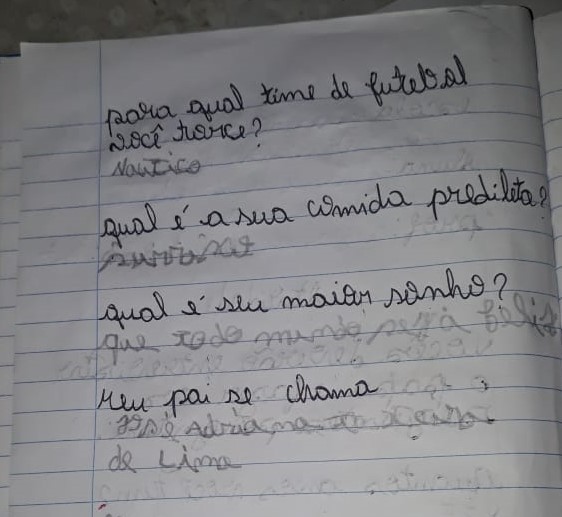 para qual time de futebol
você torce?
Nautico
qual é a sua comida predileta?
qual é seu maior sonho?
que todo mundo seja felis
meu pai se chama
José Adria
de Lima